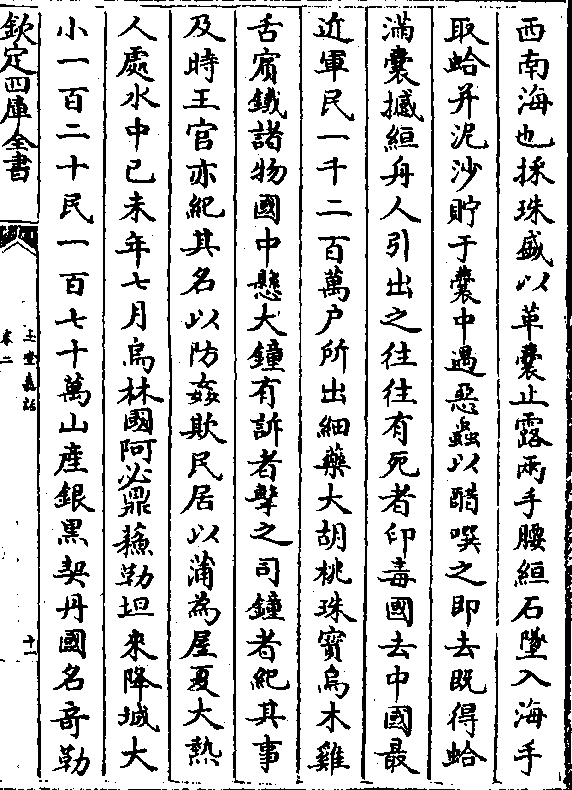 西南海也採珠盛以革囊止露兩手腰絙石墜入海手
取蛤并泥沙貯于囊中遇惡蟲以醋噀之即去既得蛤
滿囊撼絙舟人引出之往往有死者印毒國去中國最
近軍民一千二百萬户所出細藥大胡桃珠寳烏木雞
舌賔鐵諸物國中懸大鐘有訴者擊之司鐘者紀其事
及時王官亦紀其名以防姦欺民居以蒲為屋夏大熱
人處水中己未年七月烏林國阿必鼎蘓勒坦來降城大
小一百二十民一百七十萬山産銀黒契丹國名竒勒
欽定四庫全書
玉堂嘉話
卷二
十一